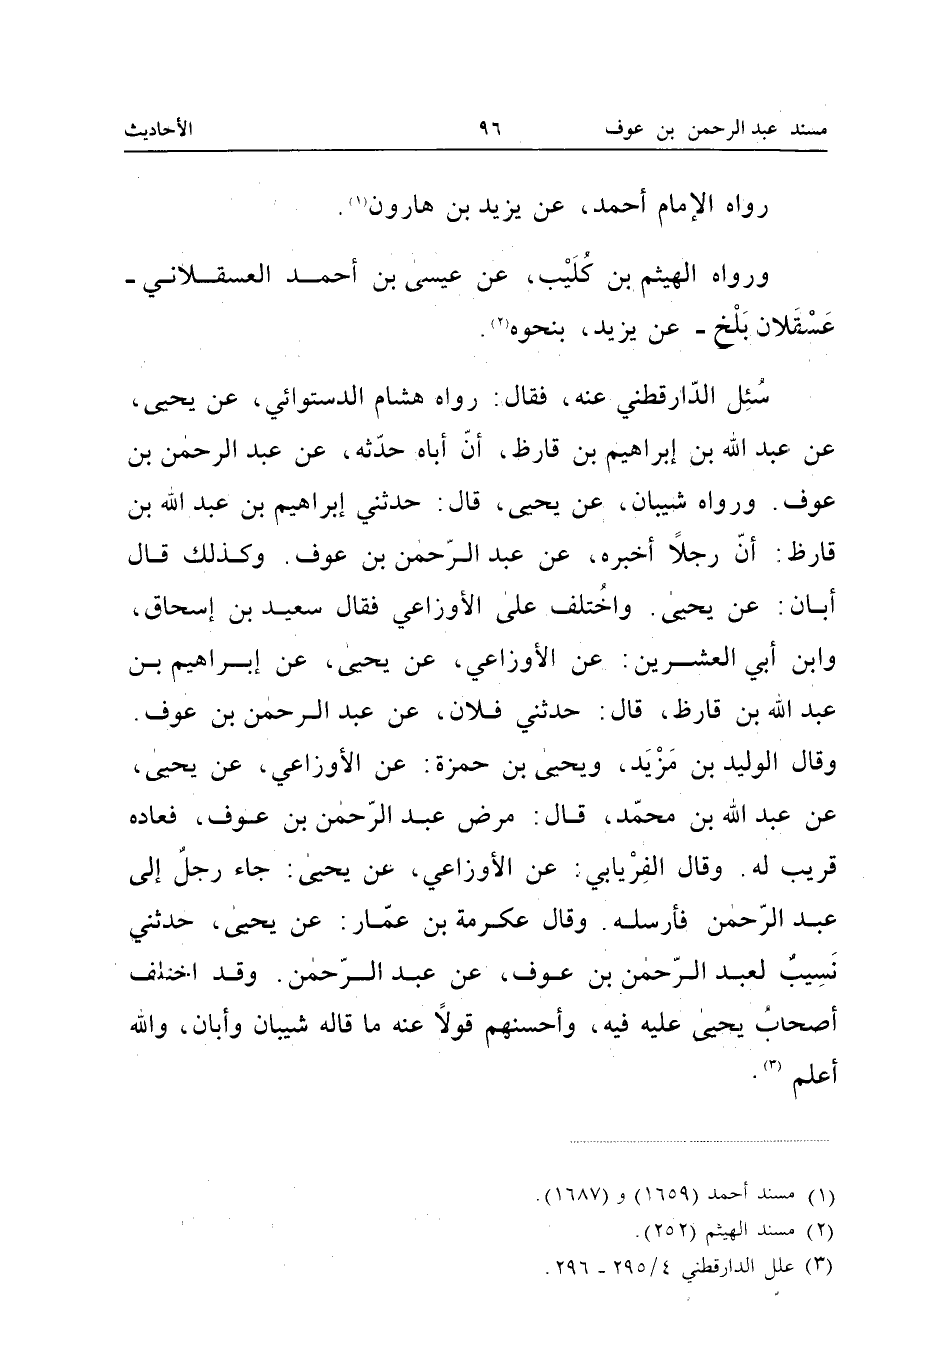 مسند عبد الرحمن بن عوف ٩٦ الأحاديث
رواه الإمام أحمد، عن يزيد بن هارون(١).
ورواه الهيثم بن كُلَيْب، عن عيسىٰ بن أحمد العسقلاني -
عَسْقَلان بَلْخ - عن يزيد، بنحوه(٢).
سُئِل الدّارقطني عنه، فقال: رواه هشام الدستوائي، عن يحيى،
عن عبد الله بن إبراهيم بن قارظ، أنّ أباه حدّثه، عن عبد الرحمٰن بن
عوف. ورواه شيبان، عن يحيى، قال: حدثني إبراهيم بن عبد الله بن
قارظ: أنّ رجلاً أخبره، عن عبد الرّحمٰن بن عوف. وكذلك قال
أبان: عن يحيىٰ. واخُتلف علىٰ الأوزاعي فقال سعيد بن إسحاق،
وابن أبي العشرين: عن الأوزاعي، عن يحيىٰ، عن إبراهيم بن
عبد الله بن قارظ، قال: حدثني فلان، عن عبد الرحمٰن بن عوف.
وقال الوليد بن مَزْيَد، ويحيىٰ بن حمزة: عن الأوزاعي، عن يحيىٰ،
عن عبد الله بن محمّد، قال: مرض عبد الرّحمٰن بن عوف، فعاده
قريب له. وقال الفِرْيابي: عن الأوزاعي، عن يحيىٰ: جاء رجلٌ إلى
عبد الرّحمٰن فأرسله. وقال عكرمة بن عمّار: عن يحيىٰ، حدثني
نَسِيبٌ لعبد الرّحمٰن بن عوف، عن عبد الرّحمٰن. وقد اختلف
أصحابُ يحيىٰ عليه فيه، وأحسنهم قولاً عنه ما قاله شيبان وأبان، والله
أعلم (٣).
(١) مسند أحمد (١٦٥٩) و (١٦٨٧).
(٢) مسند الهيثم (٢٥٢).
(٣) علل الدارقطني ٤/ ٢٩٥ - ٢٩٦.